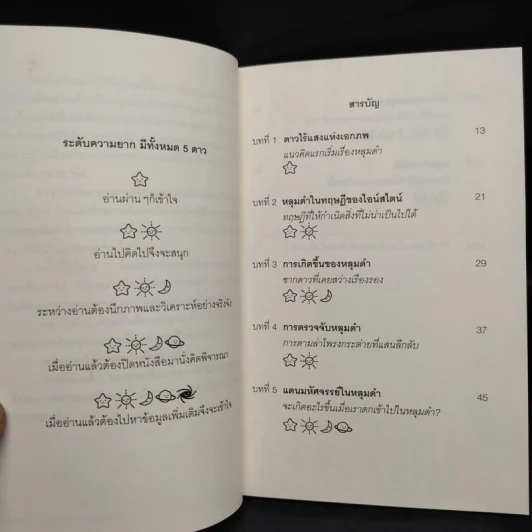 ระดับความยาก มีทั้งหมด 5 ดาว
อ่านผ่านๆก็เข้าใจ
อ่านไปคิดไปจึงจะสนุก
ระหว่างอ่านต้องนึกภาพและวิเคราะห์อย่างจริงจัง
เมื่ออ่านแล้วต้องปิดหนังสือมานั่งคิดพิจารณา
เมื่ออ่านแล้วต้องไปหาข้อมูลเพิ่มเติมจึงจะเข้าใจ
สารบัญ
บทที่ 1 ดาวไร้แสงแห่งเอกภพ 13
แนวคิดแรกเริ่มเรื่องหลุมดำ
บทที่ 2 หลุมดำในทฤษฎีของไอน์สไตน์ 21
ทฤษฎีที่ให้กำเนิดสิ่งที่ไม่น่าเป็นไปได้
บทที่ 3 การเกิดขึ้นของหลุมดำ 29
ซากดาวที่เคยสว่างเรืองรอง
บทที่ 4 การตรวจจับหลุมดำ 37
การตามล่าโพรงกระต่ายที่แสนลึกลับ
บทที่ 5 แดนมหัศจรรย์ในหลุมดำ 45
จะเกิดอะไรขึ้นเมื่อเราตกเข้าไปในหลุมดำ?